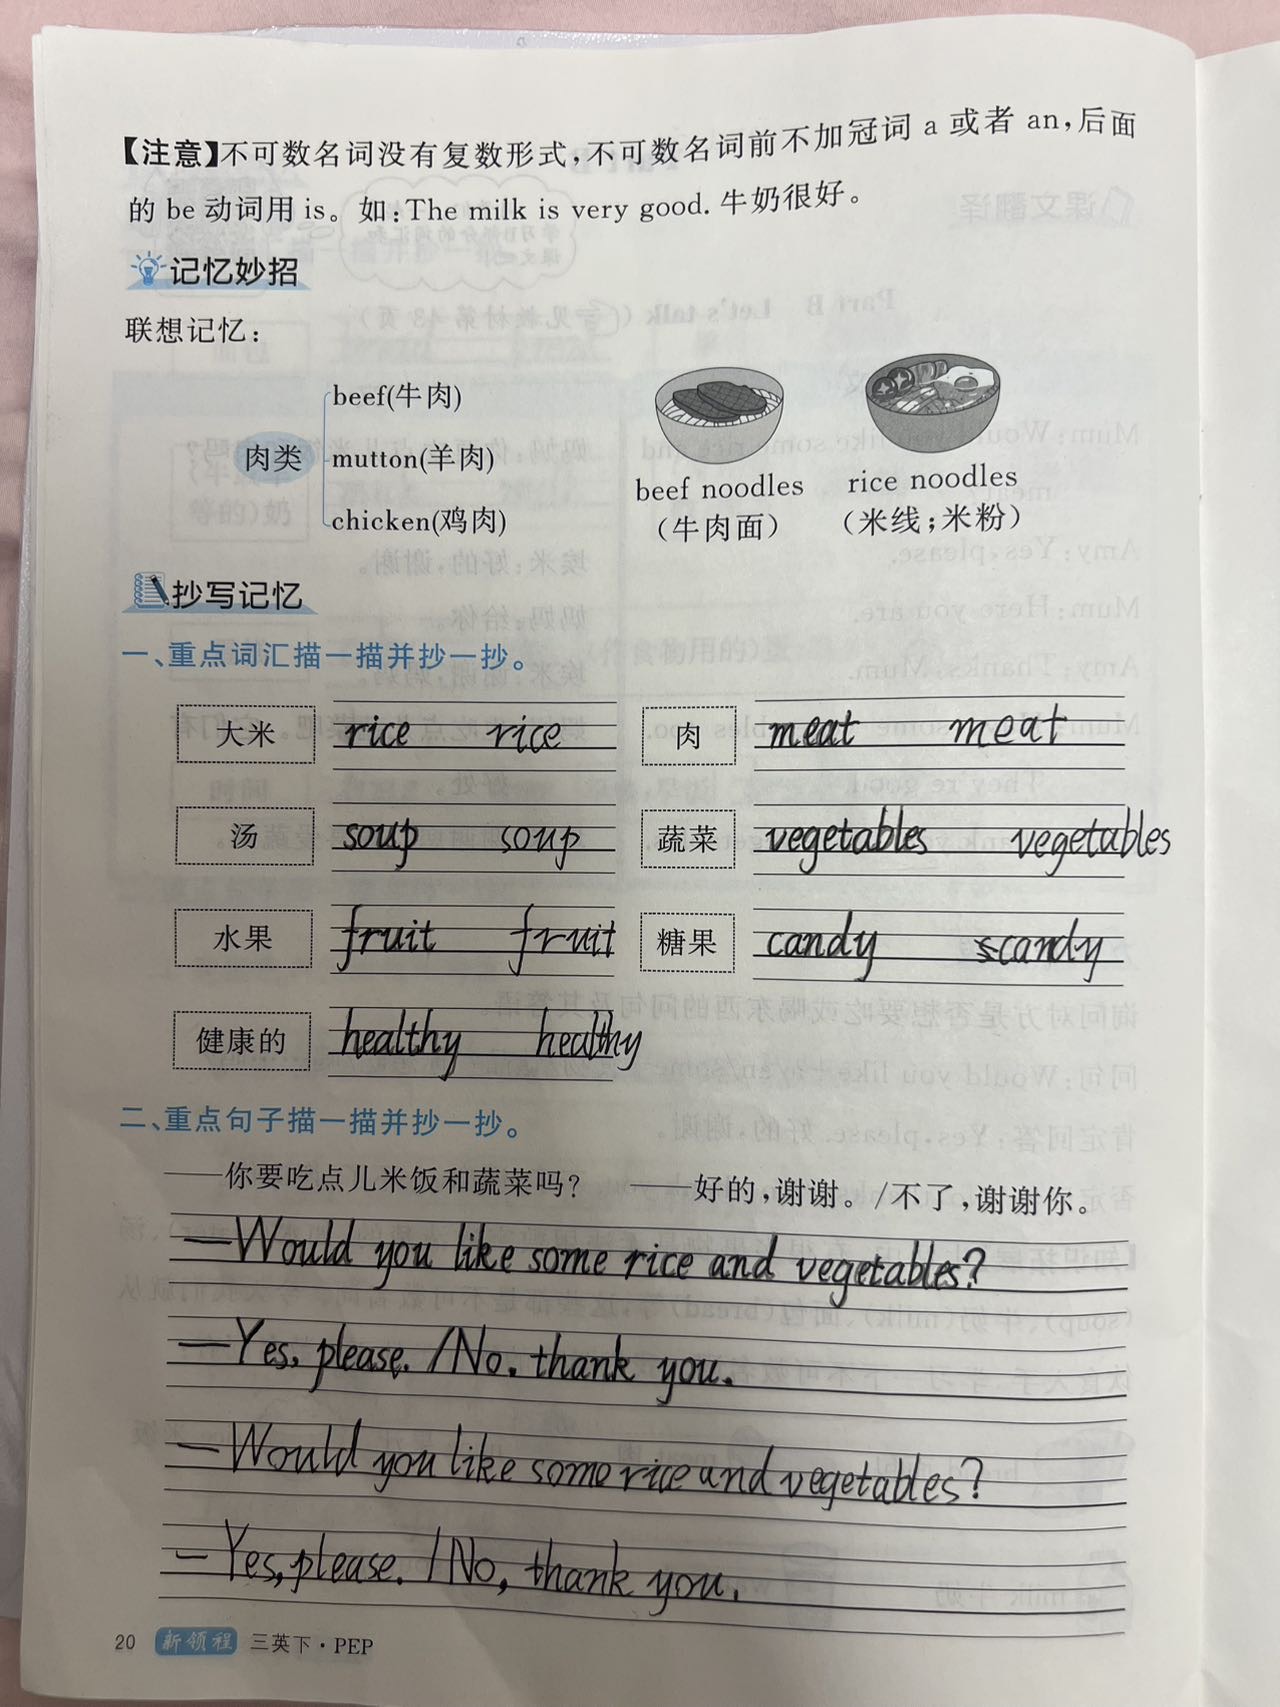 【注意】不可数名词没有复数形式，不可数名词前不加冠词 a 或者 an，后面
的 be 动词用 is。如：The milk is very good. 牛奶很好。
记忆妙招
联想记忆：
肉类
beef(牛肉)
mutton(羊肉)
chicken(鸡肉)
beef noodles
（牛肉面）
rice noodles
（米线；米粉）
抄写记忆
一、重点词汇描一描并抄一抄。
大米 rice rice 肉 meat meat
汤 soup soup 蔬菜 vegetables vegetables
水果 fruit fruit 糖果 candy candy
健康的 healthy healthy
二、重点句子描一描并抄一抄。
——你要吃点儿米饭和蔬菜吗？ ——好的，谢谢。/不了，谢谢你。
—Would you like some rice and vegetables?
—Yes, please. /No, thank you.
—Would you like some rice and vegetables?
—Yes, please. /No, thank you.
20 新领程 三英下·PEP